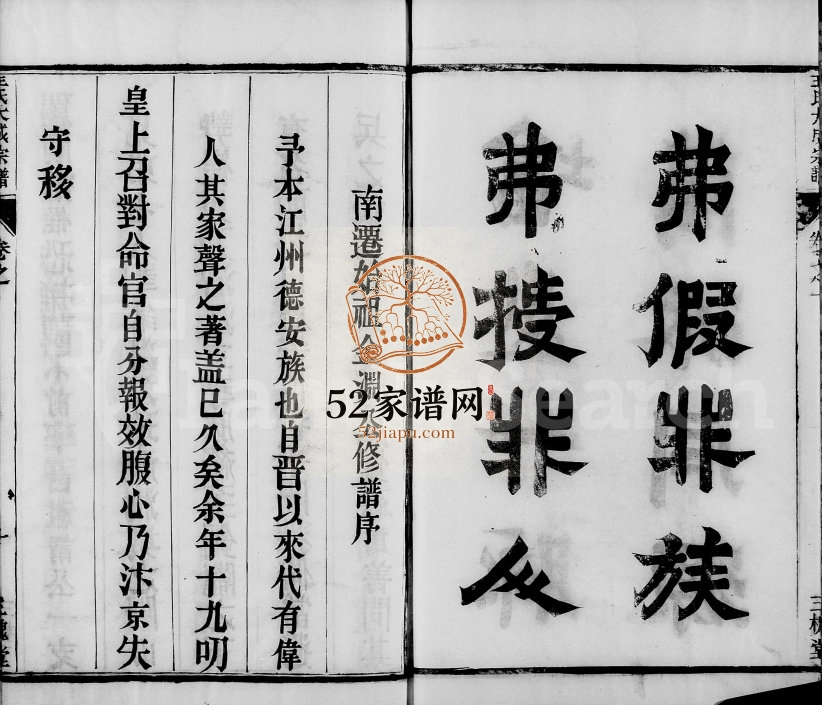 弗假罪族
弗㨗罪人
南遷始祖金淵公修譜序
予本江州德安族也自晋以來代有偉
人其家聲之著盖已久矣余年十九叨
皇上召對命官自分報效腹心乃汴京失
守移
王氏大成宗譜
卷之一
三槐堂
52家谱网
52jiapu.com